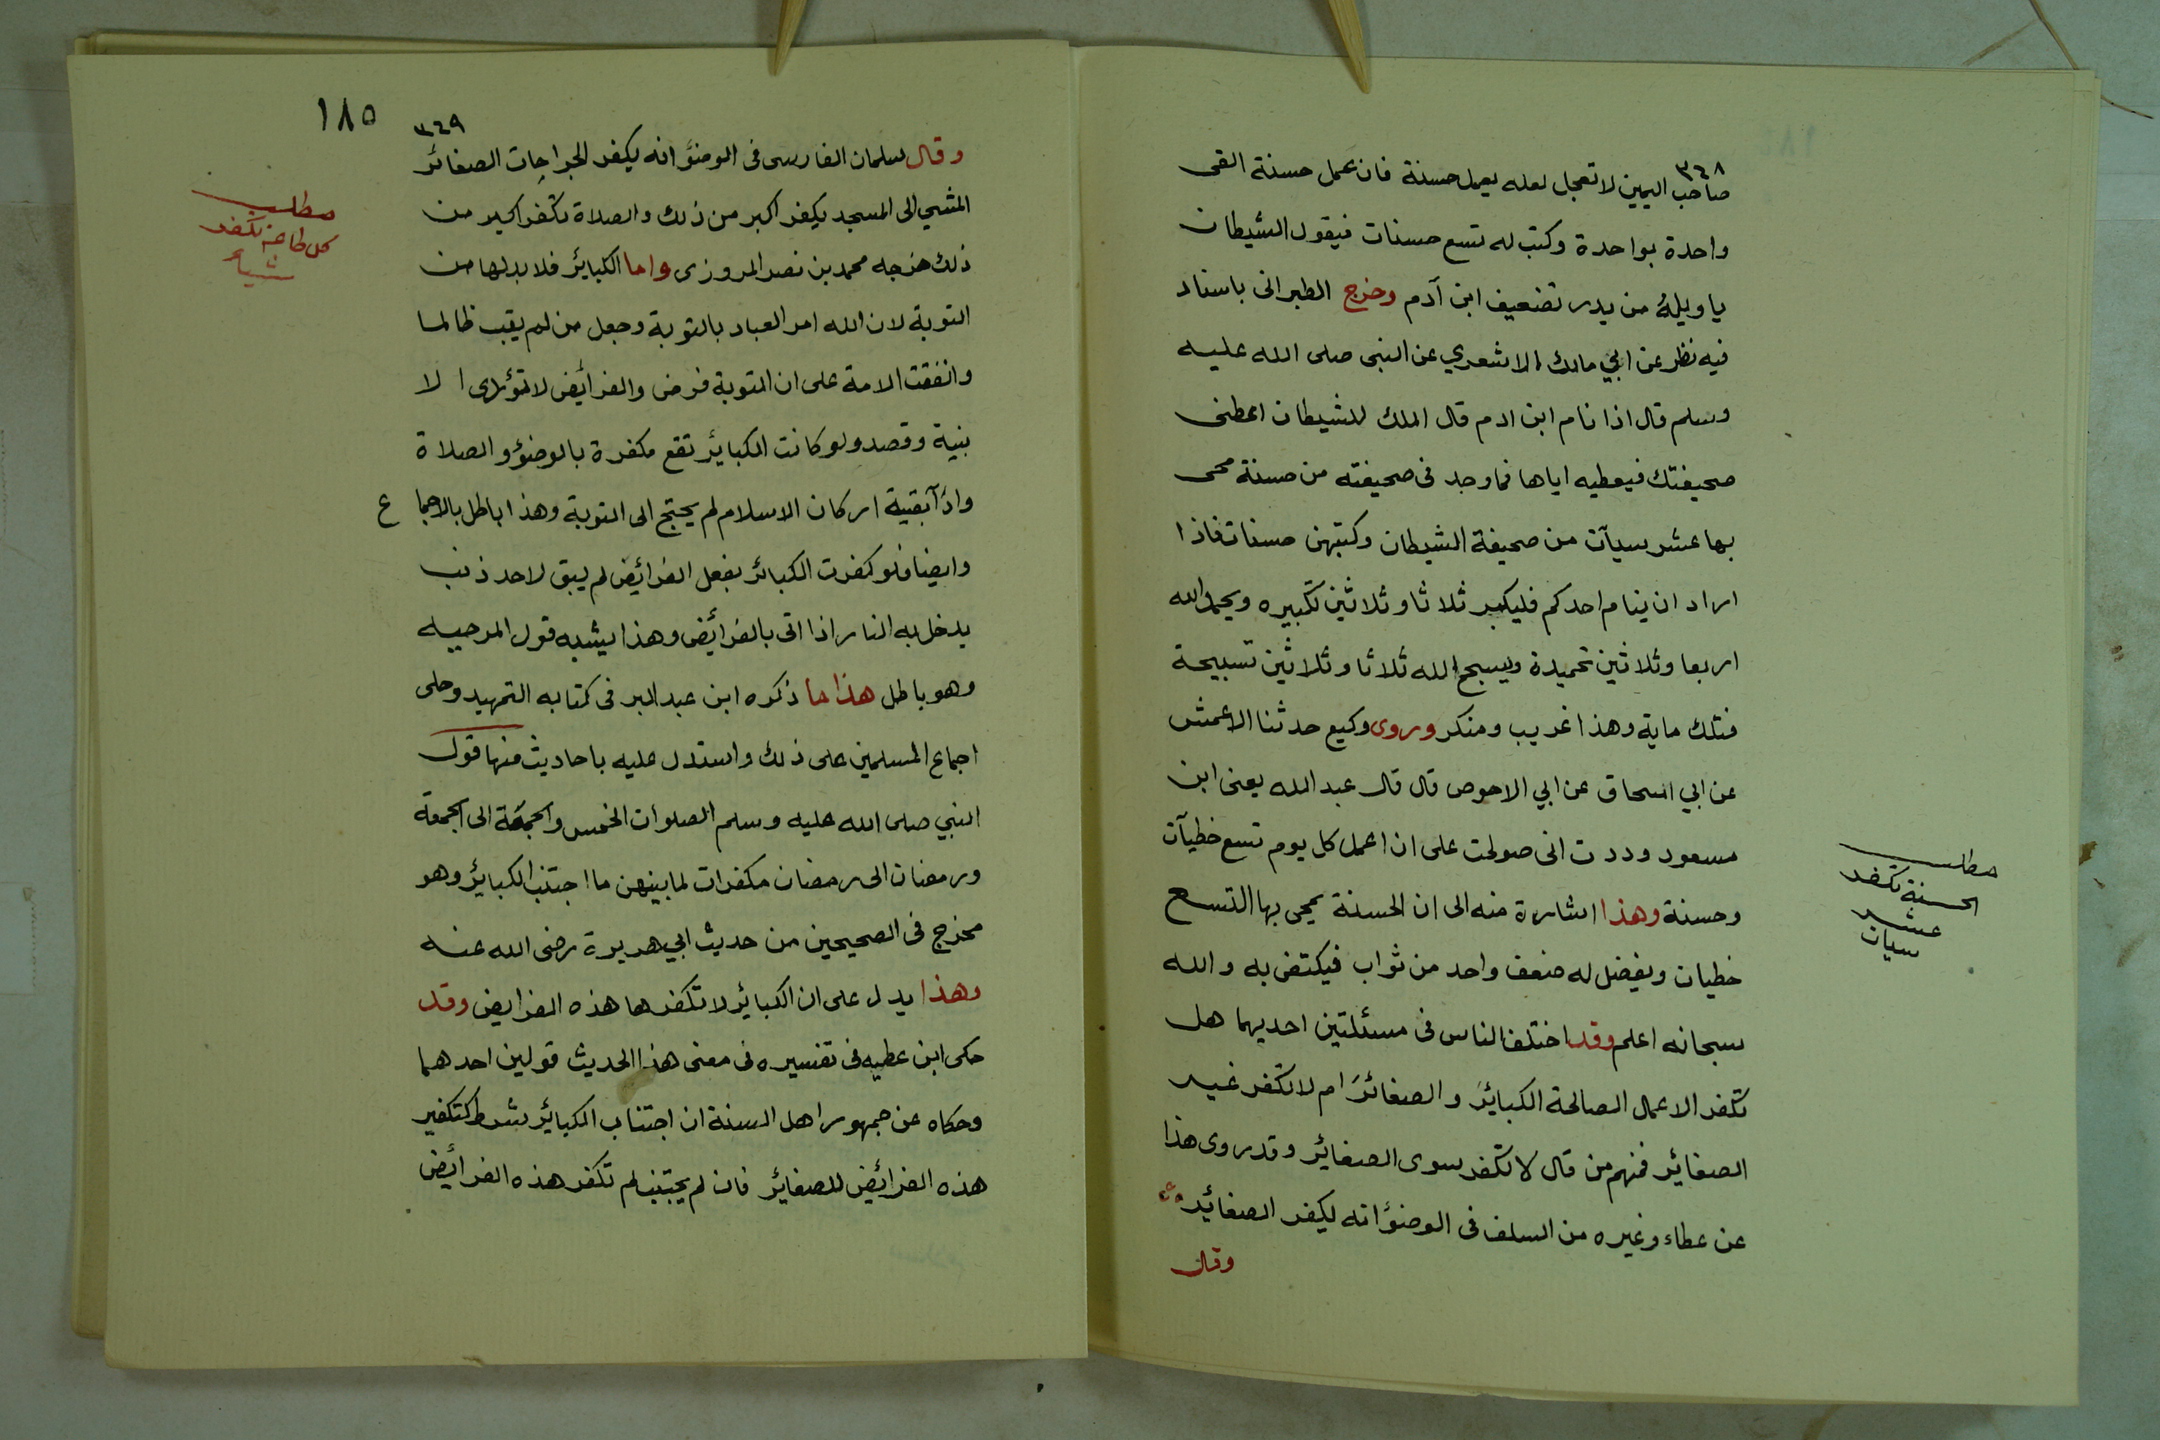 ٣٦٨
صاحب اليمين لا تعجل لعله يعمل حسنة فان عمل حسنة القى
واحدة بواحدة وكتب له تسع حسنات فيقول الشيطان
يا ويله من يدر تضعيف ابن آدم وخرج الطبرانى باسناد
فيه نظر عن ابي مالك الاشعري عن النبى صلى الله عليه
وسلم قال اذا نام ابن ادم قال الملك للشيطان اعطنى
صحيفتك فيعطيه اياها فما وجد فى صحيفته من حسنة محى
بها عشر سيآت من صحيفة الشيطان وكتبهن حسنات فاذا
اراد ان ينام احدكم فليكبر ثلاثا وثلاثين تكبيره ويحمد الله
اربعا وثلاثين تحميدة ويسبح الله ثلاثا وثلاثين تسبيحة
فتلك ماية وهذا غريب ومنكر وروى وكيع حدثنا الاعمش
عن ابي اسحاق عن ابي الاحوص قال قال عبد الله يعنى ابن
مسعود وددت انى صولحت على ان اعمل كل يوم تسع خطيآت
وحسنة وهذا اشارة منه الى ان الحسنة يمحى بها التسع
خطيات ويفضل له ضعف واحد من ثواب فيكتفى به والله
سبحانه اعلم وقد اختلف الناس فى مسئلتين احديهما هل
تكفر الاعمال الصالحة الكبائر و الصغائر ام لا تكفر غير
الصغائر فمنهم من قال لا تكفر سوى الصغائر وقد روى هذا
عن عطاء وغيره من السلف فى الوضؤ انه ليكفر الصغائر
وقال
مطلب
الحسنة تكفر
عشر
سيات
١٨٥
٣٦٩
وقال سلمان الفارسى فى الوضؤ انه يكفر الجراحات الصغائر
المشي الى المسجد يكفر اكبر من ذلك والصلاة تكفر اكبر من
ذلك خرجه محمد بن نصر المروزى واما الكبائر فلا بد لها من
التوبة لان الله امر العباد بالتوبة وجعل من لم يتب ظالما
واتفقت الامة على ان التوبة فرض والفرائض لا تؤدى الا
بنية وقصد ولو كانت الكبائر تقع مكفرة بالوضؤ والصلاة
واداء بقية اركان الاسلام لم يحتج الى التوبة وهذا باطل بالاجماع
وايضا فلو كفرت الكبائر بفعل الفرائض لم يبق لاحد ذنب
يدخل به النار اذا اتى بالفرائض وهذا يشبه قول المرجيه
وهو باطل هذا ما ذكره ابن عبد البر فى كتابه التمهيد وحكى
اجماع المسلمين على ذلك واستدل عليه باحاديث منها قول
النبي صلى الله عليه وسلم الصلوات الخمس والجمعة الى الجمعة
ورمضان الى رمضان مكفرات لما بينهن ما اجتنب الكبائر وهو
مخرج فى الصحيحين من حديث ابي هريرة رضى الله عنه
وهذا يدل على ان الكبائر لا تكفرها هذه الفرايض وقد
حكى ابن عطيه فى تفسيره فى معنى هذا الحديث قولين احدهما
وحكاه عن جمهور اهل السنة ان اجتناب الكبائر شرط لتكفير
هذه الفرائض للصغائر فان لم يجتنب لم تكفر هذه الفرائض
مطلب
كل طاعة تكفر
شيا